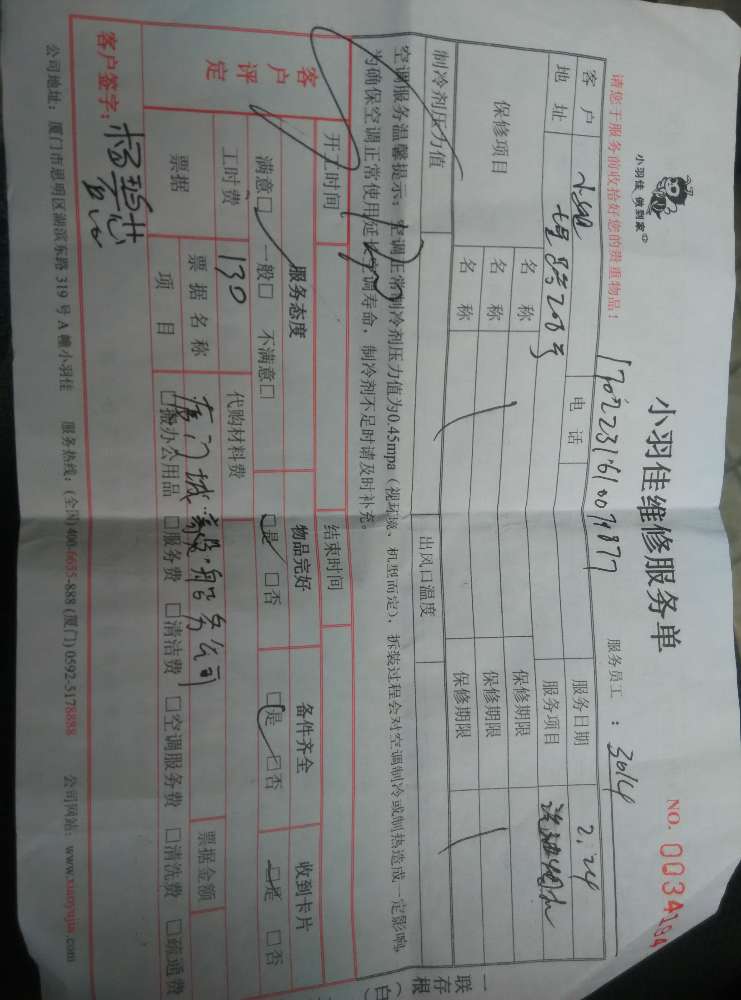 小羽佳 做到家
小羽佳维修服务单
NO. 0034184
请您于服务前收拾好您的贵重物品！
服务员工 ： 3014
客 户
电 话
服务日期 2.24
地 址 208号
服务项目
保修项目 名 称 保修期限
名 称 保修期限
名 称 保修期限
制冷剂压力值 出风口温度
空调服务温馨提示：空调正常制冷剂压力值为0.45mpa（视环境、机型而定），拆装过程会对空调制冷或制热造成一定影响，
为确保空调正常使用/延长空调寿命，制冷剂不足时请及时补充。
开工时间 结束时间
客户评定 服务态度 物品完好 备件齐全 收到卡片
满意□ 一般□ 不满意□ □是 □否 □是 □否 □是 □否
工时费 130 代购材料费
票据 票 据 名 称 票据金额
项 目 □搬办公用品 □服务费 □清洁费 □空调服务费 □清洗费 □疏通费
客户签字：
公司地址：厦门市思明区湖滨东路 319 号 A 幢小羽佳 服务热线：(全国) 400-6655-888 (厦门) 0592-5178888 公司网站：www.xiaoyujia.com
一联存根（白